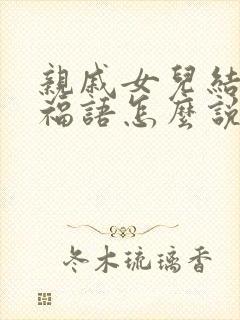 親戚女兒結
福語怎麼說
冬木琉璃香